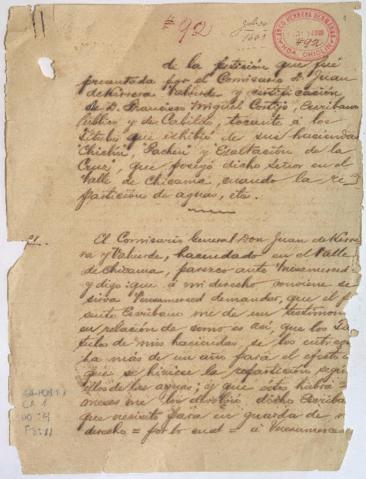 #92
Julio
1701
LARCO HERRERA HERMANOS
492
HDA. CHICLIN
de la petición que fué
presentada por el Comisario D. Juan
de Herrera Valverde y certificación
de D. Francisco Miguel Cortijo, Escribano
Público y de Cabildo, tocante á los
títulos que exhibió de sus haciendas
"Chiclin", "Pachin" y Exaltación de la
Cruz", que poseyó dicho Señor en el
Valle de Chicama, cuando la re-
partición de aguas, etc.
El Comisario General Don Juan de Herre-
ra y Valverde, hacendado en el Valle
de Chicama, parezco ante Vuesamerced
y digo: que á mi derecho conviene se
sirva Vuesamerced de mandar, que el
Escribano me de un testimon
en relación de como es así, que los tí-
tulos de mis haciendas, se los entregu
ha más de un año para el efecto
que se hiciese la repartición, segu
ellos de las aguas; y que éstos habrá
meses me los devolvió, dicho Escriba
que necesito para en guarda de
derecho = por lo cual = á Vuesamerced
CA 1